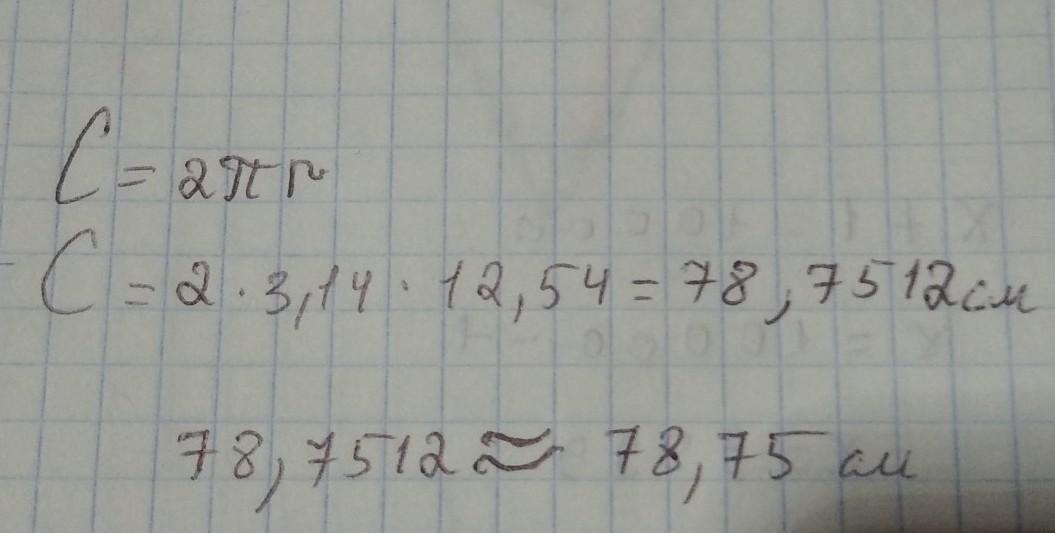 C = 2πr
C = 2 · 3,14 · 12,54 = 78,7512 см
78,7512 ≈ 78,75 см